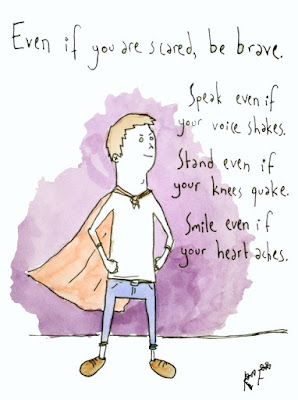 Even if you are scared, be brave.
Speak even if
your voice shakes.
Stand even if
your knees quake.
Smile even if
your heart aches.
K F